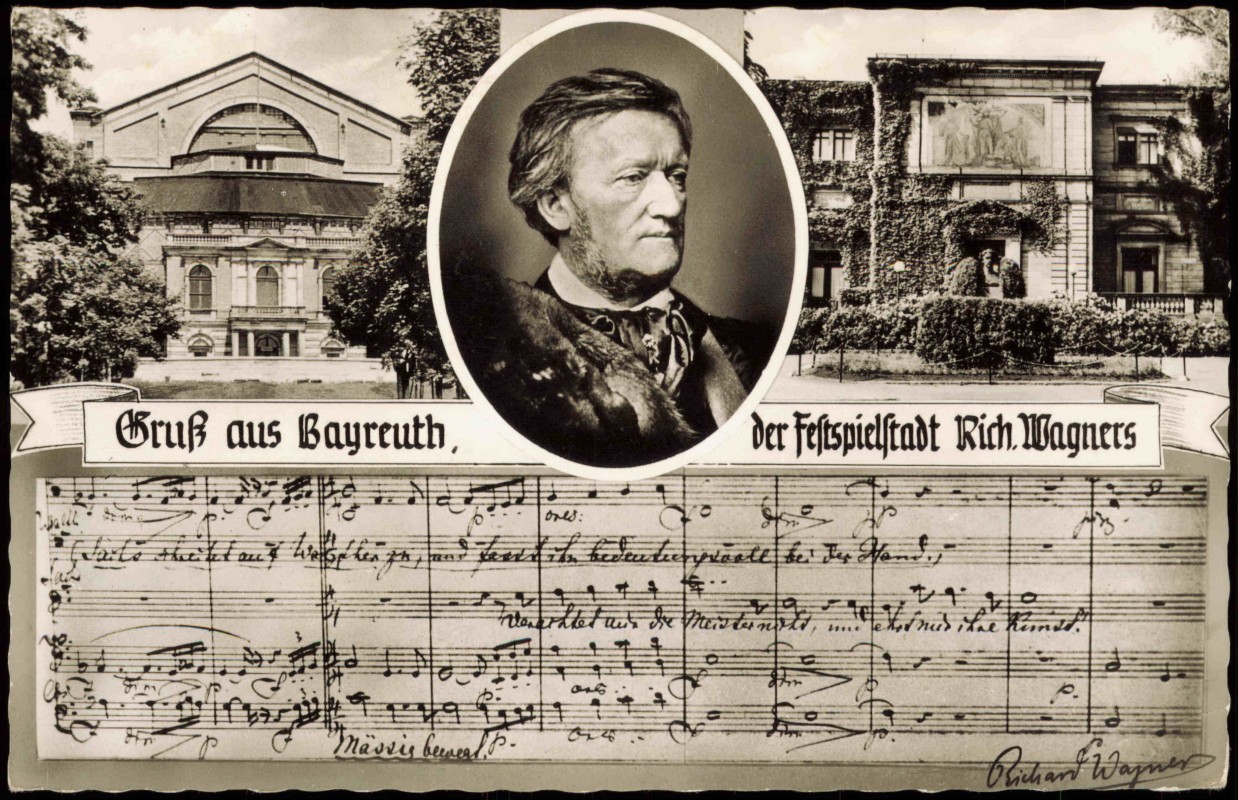 Gruß aus Bayreuth,
der Festspielstadt Rich. Wagners
cresc:
(Sachs schreitet auf Walther zu, und fasst ihn bedeutungsvoll bei der Hand.)
Verachtet mir die Meister nicht, und ehrt mir ihre Kunst!
dim
p
cresc
dim
p
dim
p
cresc
dim
p
Mässig bewegt.
Richard Wagner